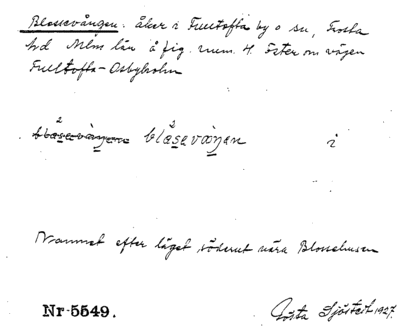 Blossevången. åker i Fulltofta by o sn, Frosta
hd Mlm län å fig. num. 4. Öster om vägen
Fulltofta-Osbyholm
blåsevàŋen i
Namnet efter läget söderut nära Blossehusen
Nr 5549. Gösta Sjöstedt 1927.